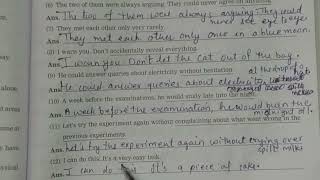 (6) The two of them were always arguing. They could never agree on anything.
Ans. The two of them were always arguing They could
never see eye to eye
(7) They met each other only very rarely.
Ans. They met each other only once in a blue moon.
(8) I warn you. Don't accidentally reveal everything.
Ans. I warn you. Don't let the cat out of the bag.
(9) He could answer queries about electricity without hesitation
at the drop of hat
Ans. He could answer queries about electricity
(10) A week before the examinations, he would study late into the night.
Ans. A week before the examination, he would burn the
midnight oil.
(11) Let's try the experiment again without complaining about what went wrong in the
previous experiments.
Ans. Let's try the experiment again without crying over
spilt milk
(12) I can do this. It's a very easy task.
Ans. I can do It's a piece of cake.